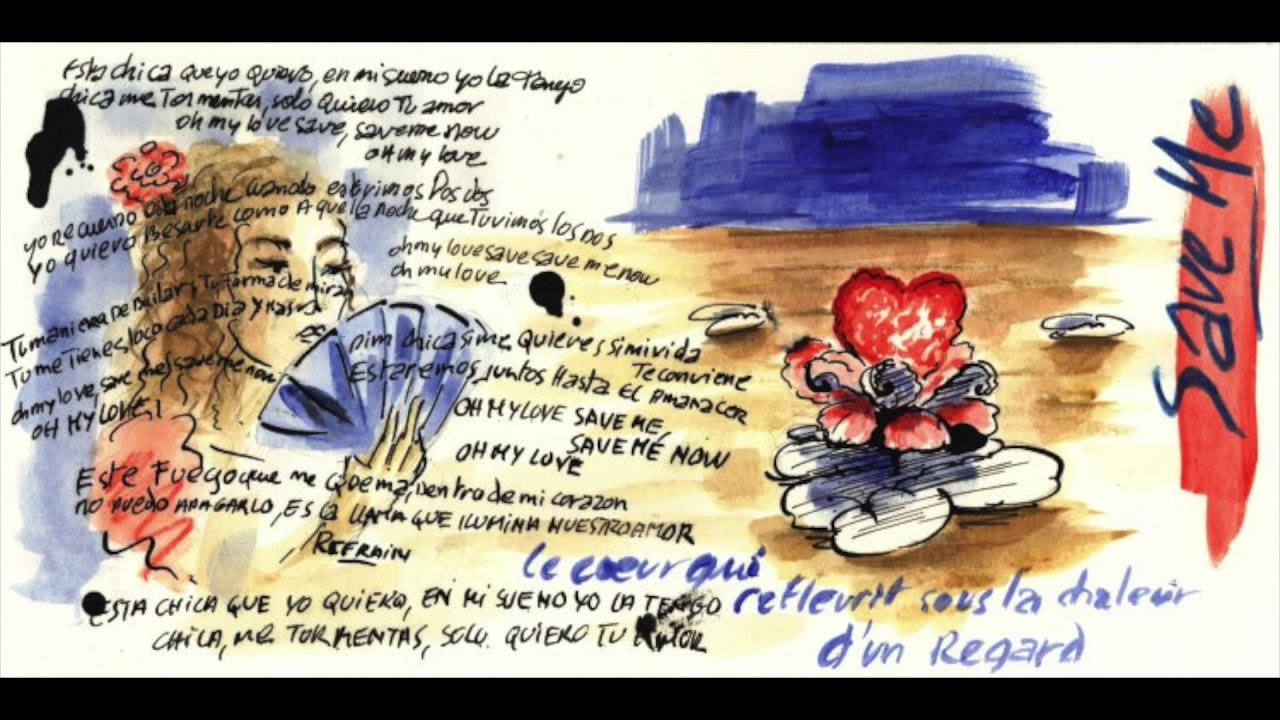 Esta chica que yo quiero, en mi sueno yo la tengo
chica me tormentas, solo quiero tu amor
oh my love save, save me now
oh my love
yo recuerdo esta noche cuando estuvimos los dos
yo quiero besarte como aquella noche que tuvimos los dos
oh my love save save me now
oh my love
Tu maniera de bailar, tu forma de mirar
Tu me tienes loco cada dia y mas
oh my love, save me, save me now
OH MY LOVE!
Dim chica si me quieres si mi vida
Te conviene
Estaremos juntos Hasta El Amanacer
OH MY LOVE SAVE ME
SAVE ME NOW
OH MY LOVE
Este Fuego que me quema, dentro de mi corazon
no puedo apagarlo, es la llama que ilumina nuestro amor
REFRAIN
ESTA CHICA QUE YO QUIERO, EN MI SUENO YO LA TENGO
CHICA, ME TORMENTAS, SOLO QUIERO TU AMOR
le coeur qui
refleurit sous la chaleur
d'un Regard
Save Me